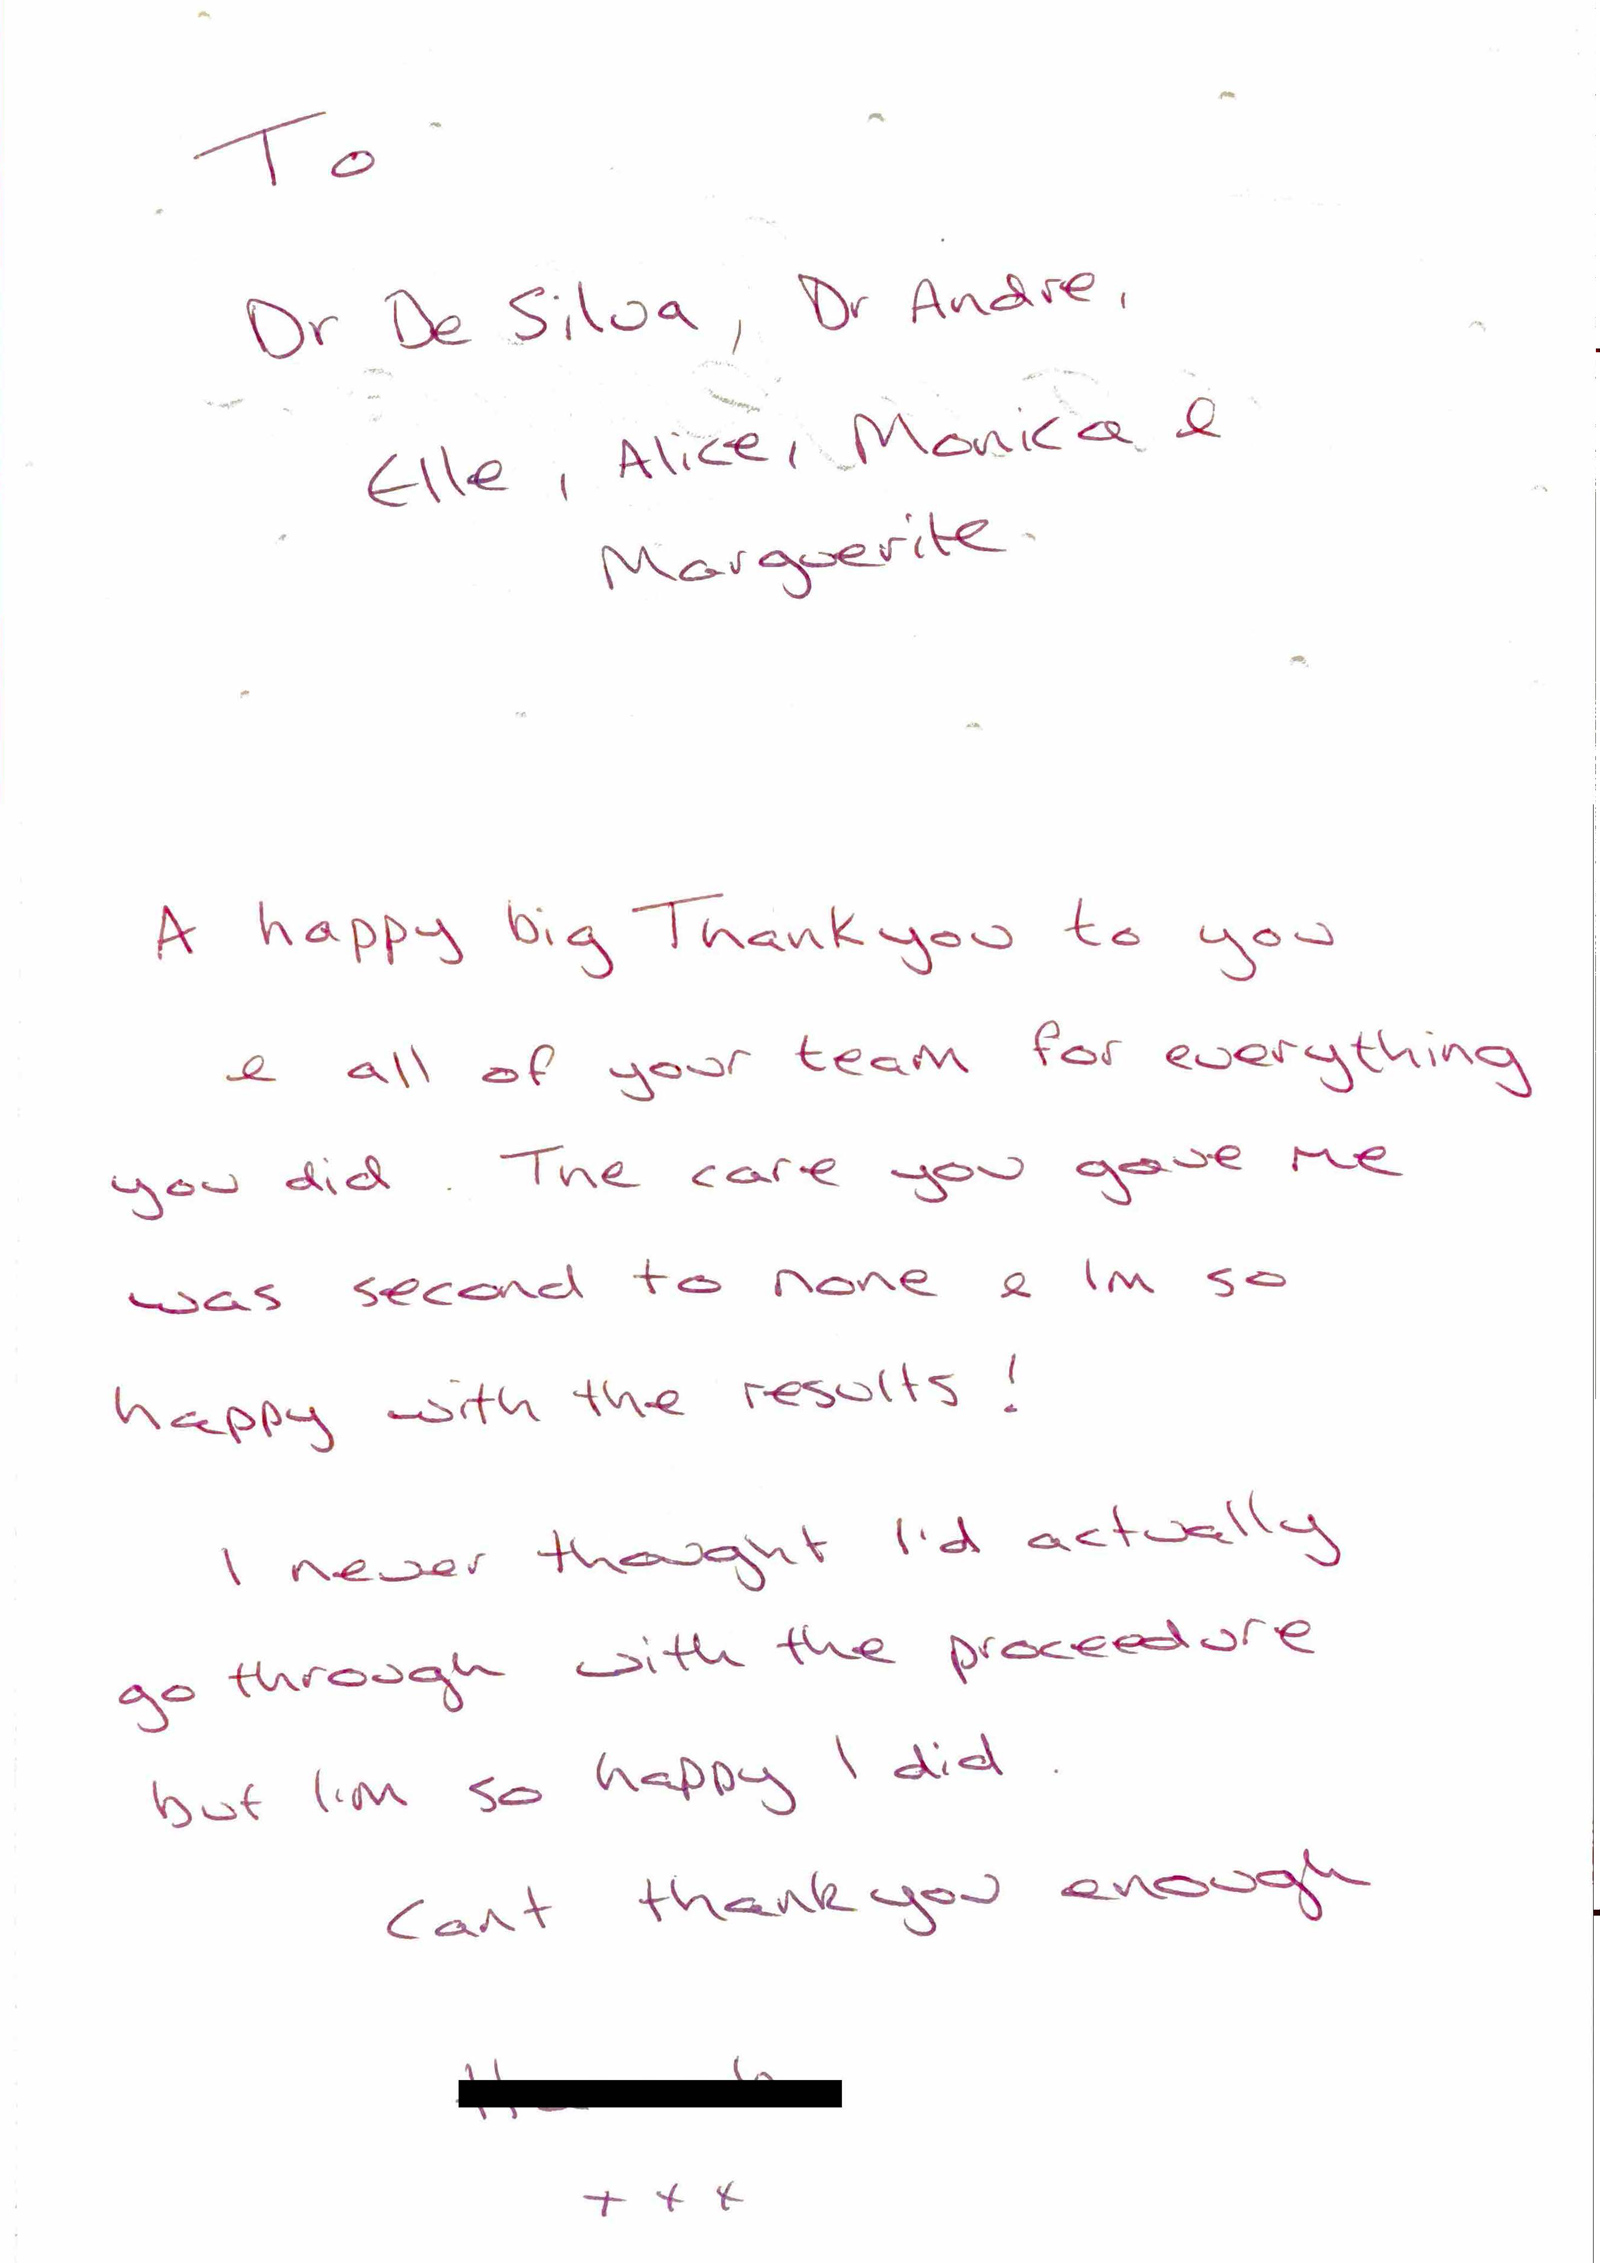 To
Dr De Silva, Dr Andre,
Elle, Alice, Monica &
Marguerite.
A happy big Thankyou to you
& all of your team for everything
you did. The care you gave me
was second to none & Im so
happy with the results!
I never thought I'd actually
go through with the proceedure
but I'm so happy I did.
Cant thankyou enough
xxx